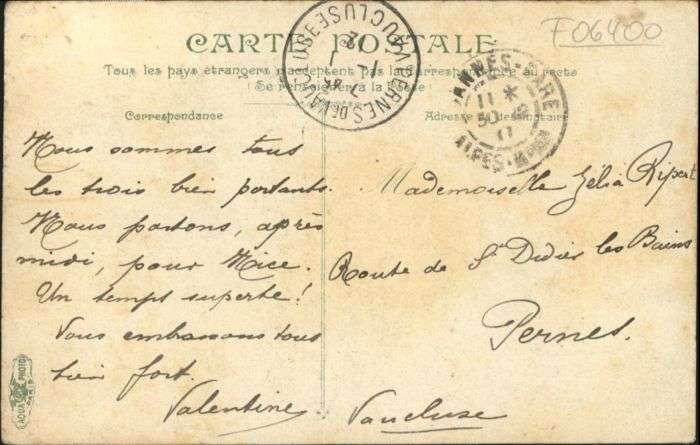 F06400
CARTE POSTALE
Tous les pays étrangers n'acceptent pas la Correspondance au recto
Se renseigner à la Poste
Correspondance
Adresse du destinataire
PERNES DE VAUCLUSE
VAUCLUSE
CANNES-GARE
11 *
30
11
ALPES-MARITIMES
Nous sommes tous
les trois bien portants.
Nous partons, après
midi, pour Nice.
Un temps superbe!
Vous embrassons tous
bien fort.
Valentine
Mademoiselle Zélia Ripert
Route de St Didier les Bains
Pernes.
Vaucluse
AQUA PHOTO
PARIS